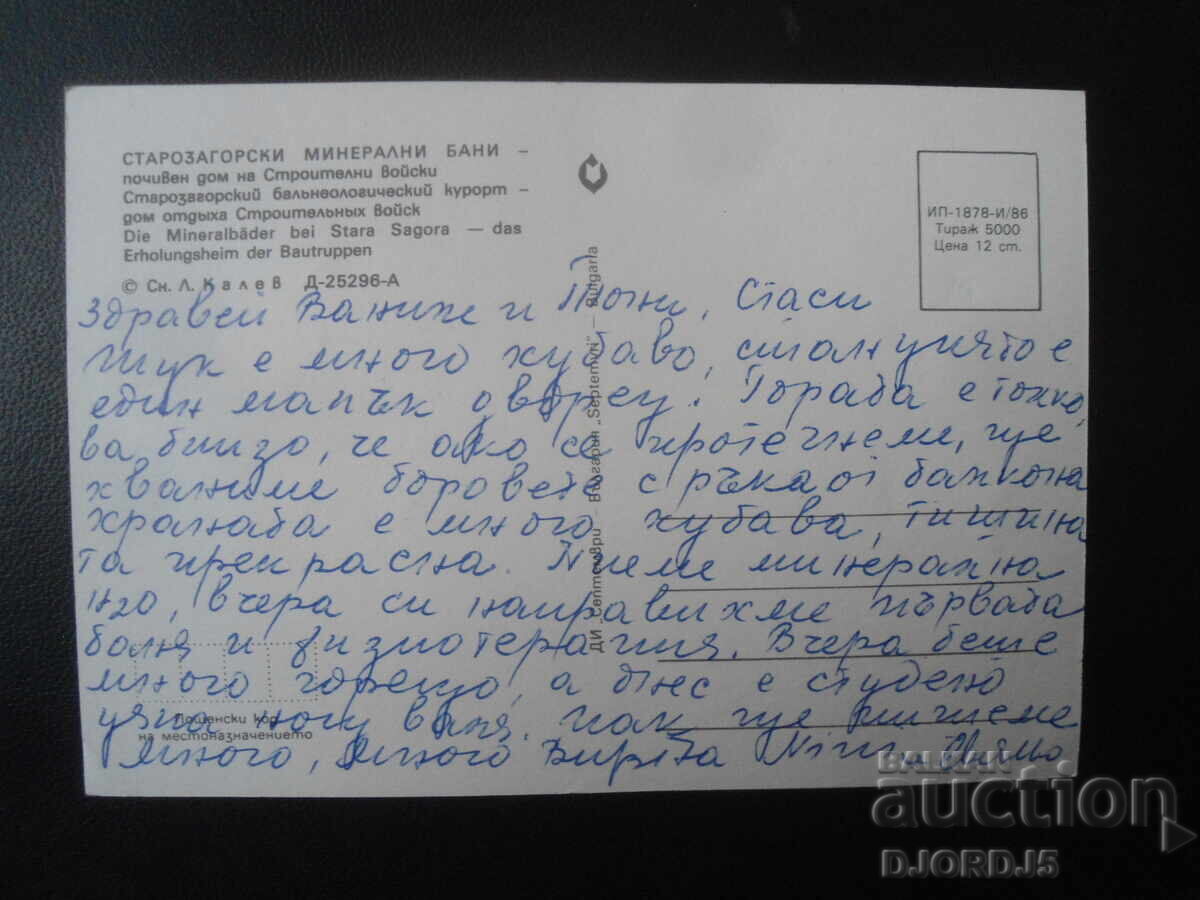 СТАРОЗАГОРСКИ МИНЕРАЛНИ БАНИ –
почивен дом на Строителни войски
Старозагорский бальнеологический курорт –
дом отдыха Строительных войск
Die Mineralbäder bei Stara Sagora — das
Erholungsheim der Bautruppen
© Сн. Л. Калев Д-25296-А
ИП-1878-И/86
Тираж 5000
Цена 12 ст.
ДИ „Септември" — България „Septemvri" — Bulgaria
Здравей Ванище и Тони, Стаси
тук е много хубаво, станцията е
един малък дворец. Гората е толко
ва близо, че ако се протегнеме, ще
хванеме боровете с ръка от балкона
храната е много хубава, тишина
та прекрасна. Пиеме минерална
H2O, вчера си направихме първата
баня и физиотерапия. Вчера беше
много горещо, а днес е студено
цяла нощ валя. пак ще пишеме
Много, много
Пощенски код
на местоназначението
BALKAN
auction
DJORDJ5